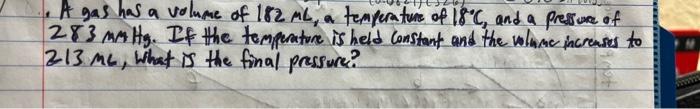 . A gas has a volume of 182 mL, a temperature of 18°C, and a pressure of
283 mm Hg. If the temperature is held constant and the volume increases to
213 mL, what is the final pressure?